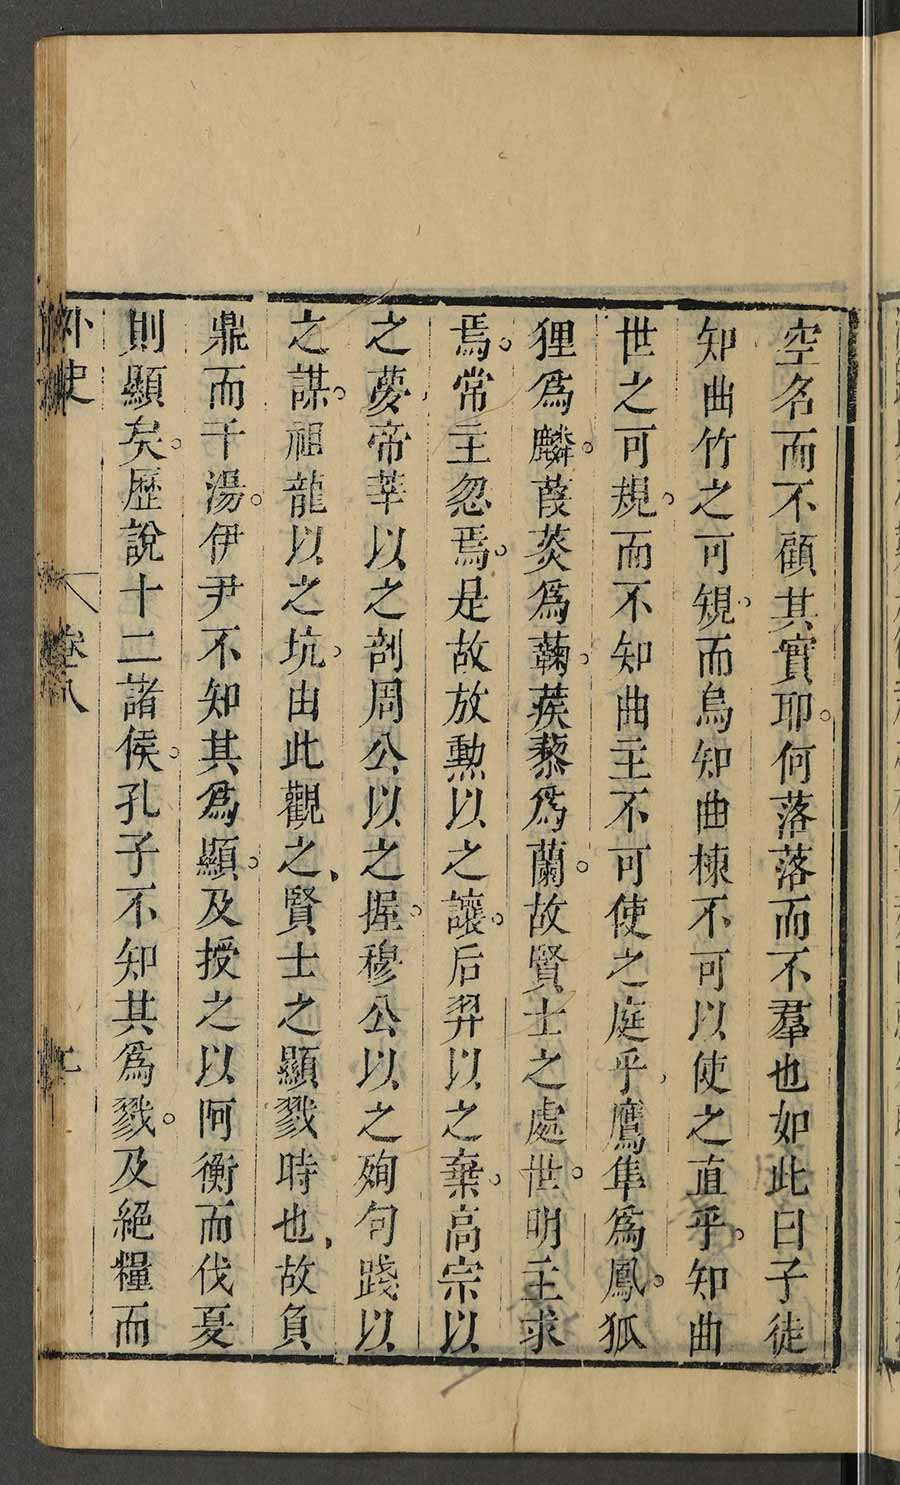 空名而不顧其實耶。何落落而不羣也如此曰子徒
知曲竹之可規。而烏知曲棟不可以使之直乎。知曲
世之可規。而不知曲主不可使之庭乎。鷹隼爲鳳。狐
狸爲麟。葭菼爲蘜。蒺藜爲蘭。故賢士之處世。明主求
焉。常主忽焉。是故放勲以之讓。后羿以之棄。高宗以
之夢、帝莘以之剖、周公以之握。穆公以之殉、句踐以
之謀。祖龍以之坑。由此觀之、賢士之顯戮時也、故負
鼎而干湯。伊尹不知其爲顯。及授之以阿衡而伐夏
則顯矣。歷說十二諸侯。孔子不知其爲戮。及絕糧而
外史
卷八